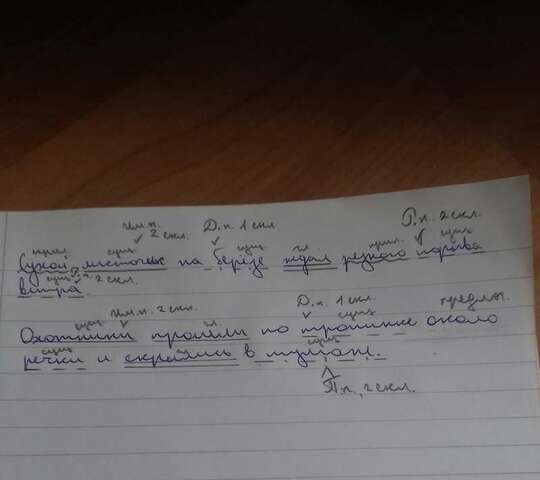 Им.п. 2 скл. Д.п. 1 скл Р.п. 2 скл.
прил. сущ. сущ. гл. прил. сущ.
Сухой листочек на березе ждал резкого порыва
сущ. Р.п. 2 скл.
ветра.
Им.п. 2 скл. Д.п. 1 скл.
сущ. гл. сущ. предлог.
Охотники прошли по тропинке около
сущ. гл. сущ.
речки и скрылись в тумане.
П.п., 2 скл.